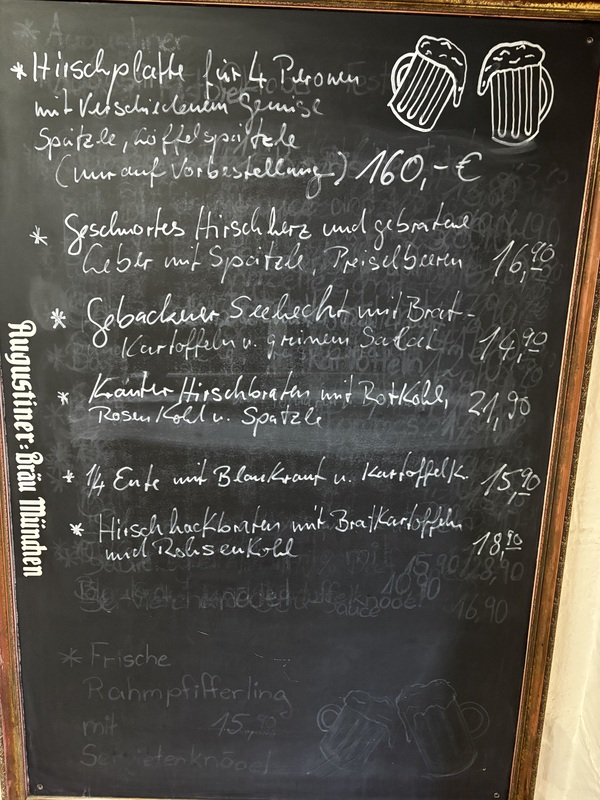 * Hirschplatte für 4 Peronen
mit Verschiedenem Gemüse
Spätzle, Löffelspätzle
(nur auf Vorbestellung) 160,-€
* Geschmortes Hirschherz und gebratene
Leber mit Spätzle, Preiselbeeren 16,90
* Gebackener Seehecht mit Brat-
Kartoffeln u. grünem Salat 14,90
* Kräuter Hirschbraten mit Rotkohl, 21,90
RosenKohl u. Spätzle
* 1/4 Ente mit Blaukraut u. Kartoffelk. 15,90
* Hirschhackbraten mit Bratkartoffeln
und RohsenKohl 18,90
15,90
10,90
16,90
* Frische
Rahmpfifferling
mit 15,90
Servietenknödel
Augustiner-Bräu München